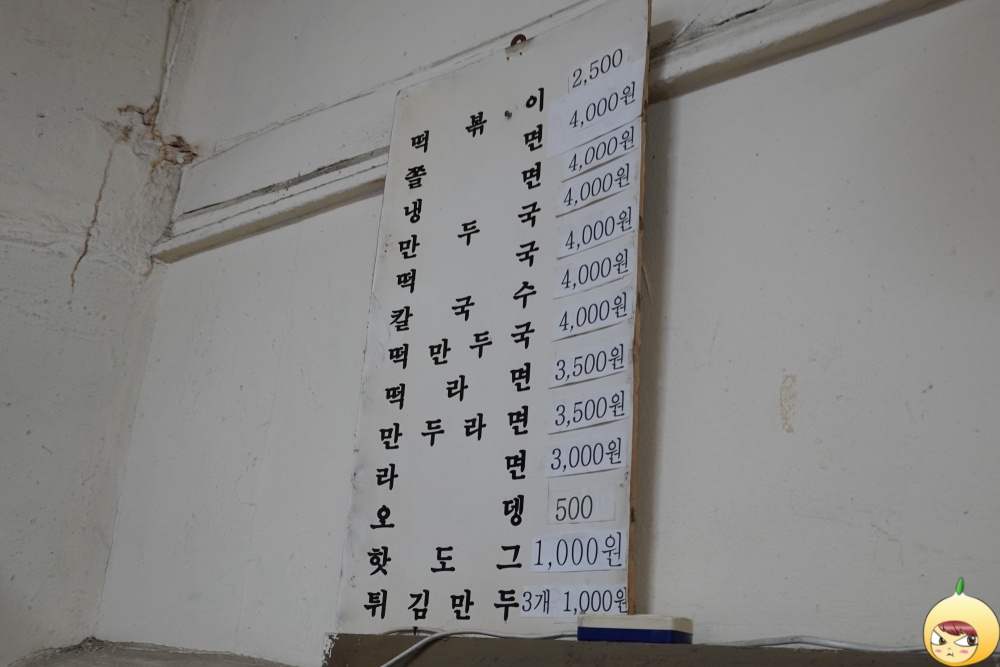 떡볶이 2,500
쫄면 4,000원
냉면 4,000원
만두국 4,000원
떡국 4,000원
칼국수 4,000원
떡만두국 4,000원
떡라면 3,500원
만두라면 3,500원
라면 3,000원
오뎅 500
핫도그 1,000원
튀김만두 3개 1,000원